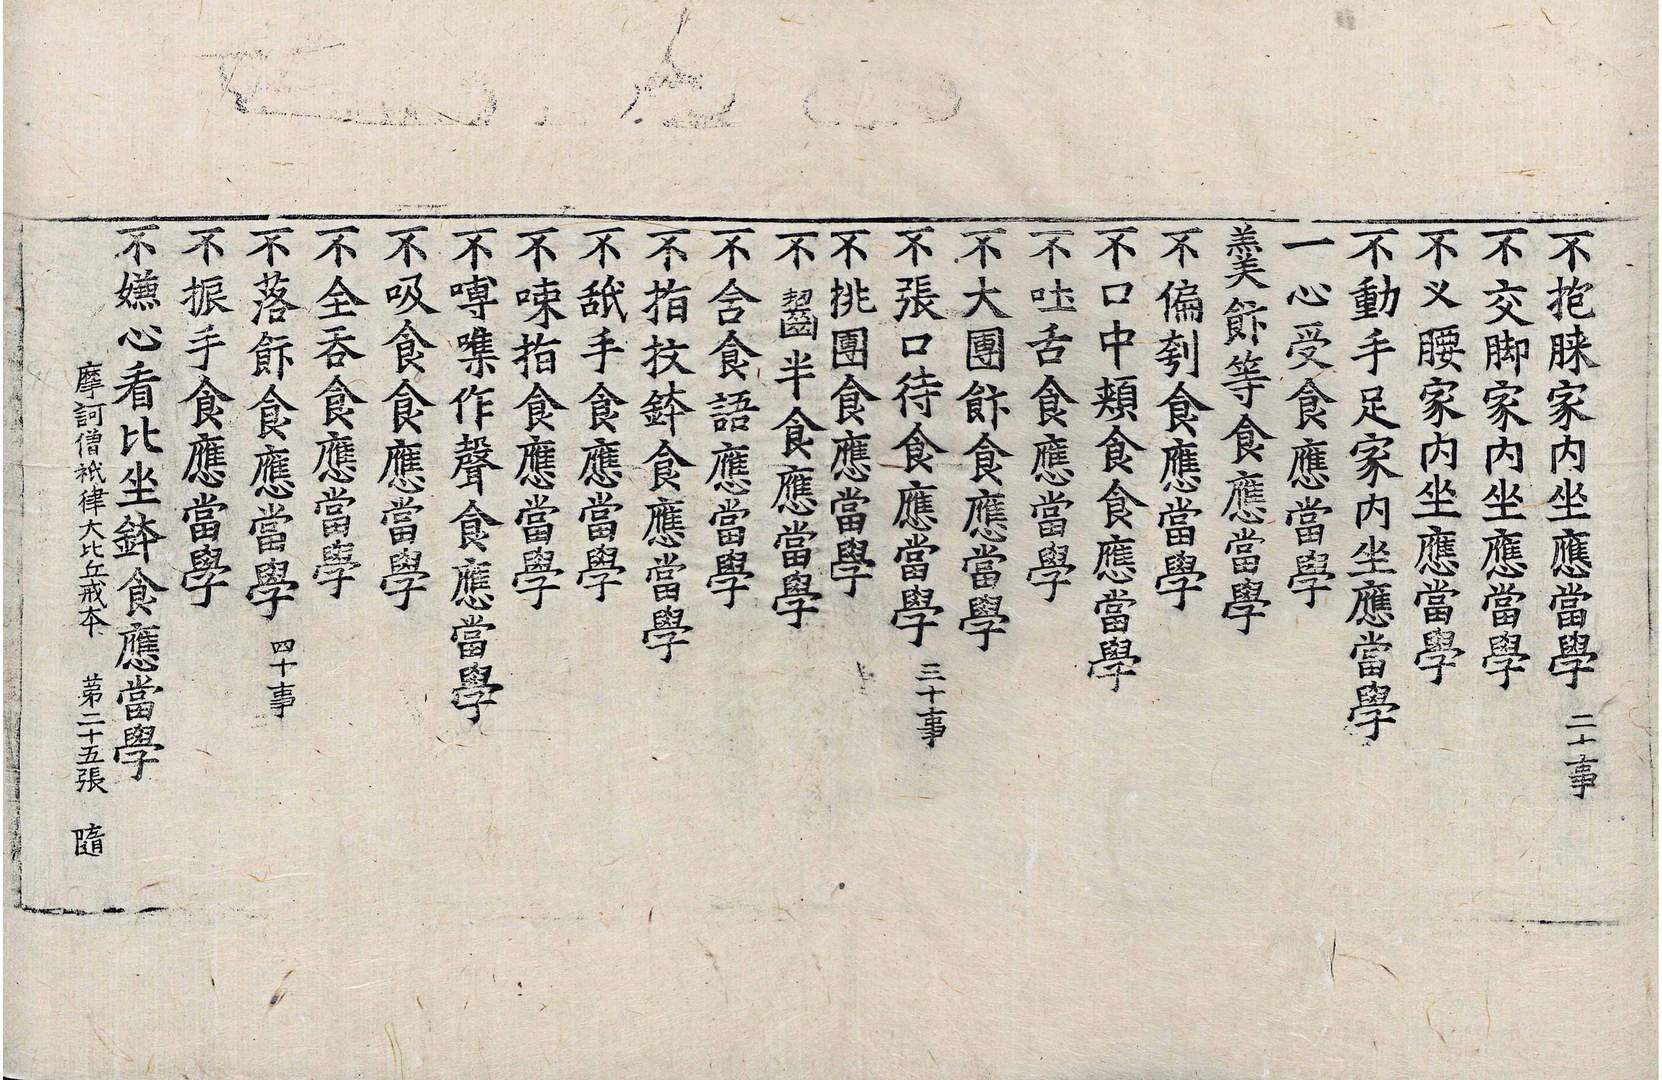 不抱䐛家内坐應當學 二十事
不交脚家内坐應當學
不义腰家内坐應當學
不動手足家内坐應當學
一心受食應當學
羹飰等食應當學
不偏刳食應當學
不口中頰食食應當學
不吐舌食應當學
不大團飰食應當學
不張口待食應當學 三十事
不挑團食應當學
不齧半食應當學
不含食語應當學
不指抆鉢食應當學
不舐手食應當學
不㖨指食應當學
不嘙噍作聲食應當學
不吸食食應當學
不全吞食應當學
不落飰食應當學 四十事
不振手食應當學
不嫌心看比坐鉢食應當學
摩訶僧祇律大比丘戒本 苐二十五張 隨